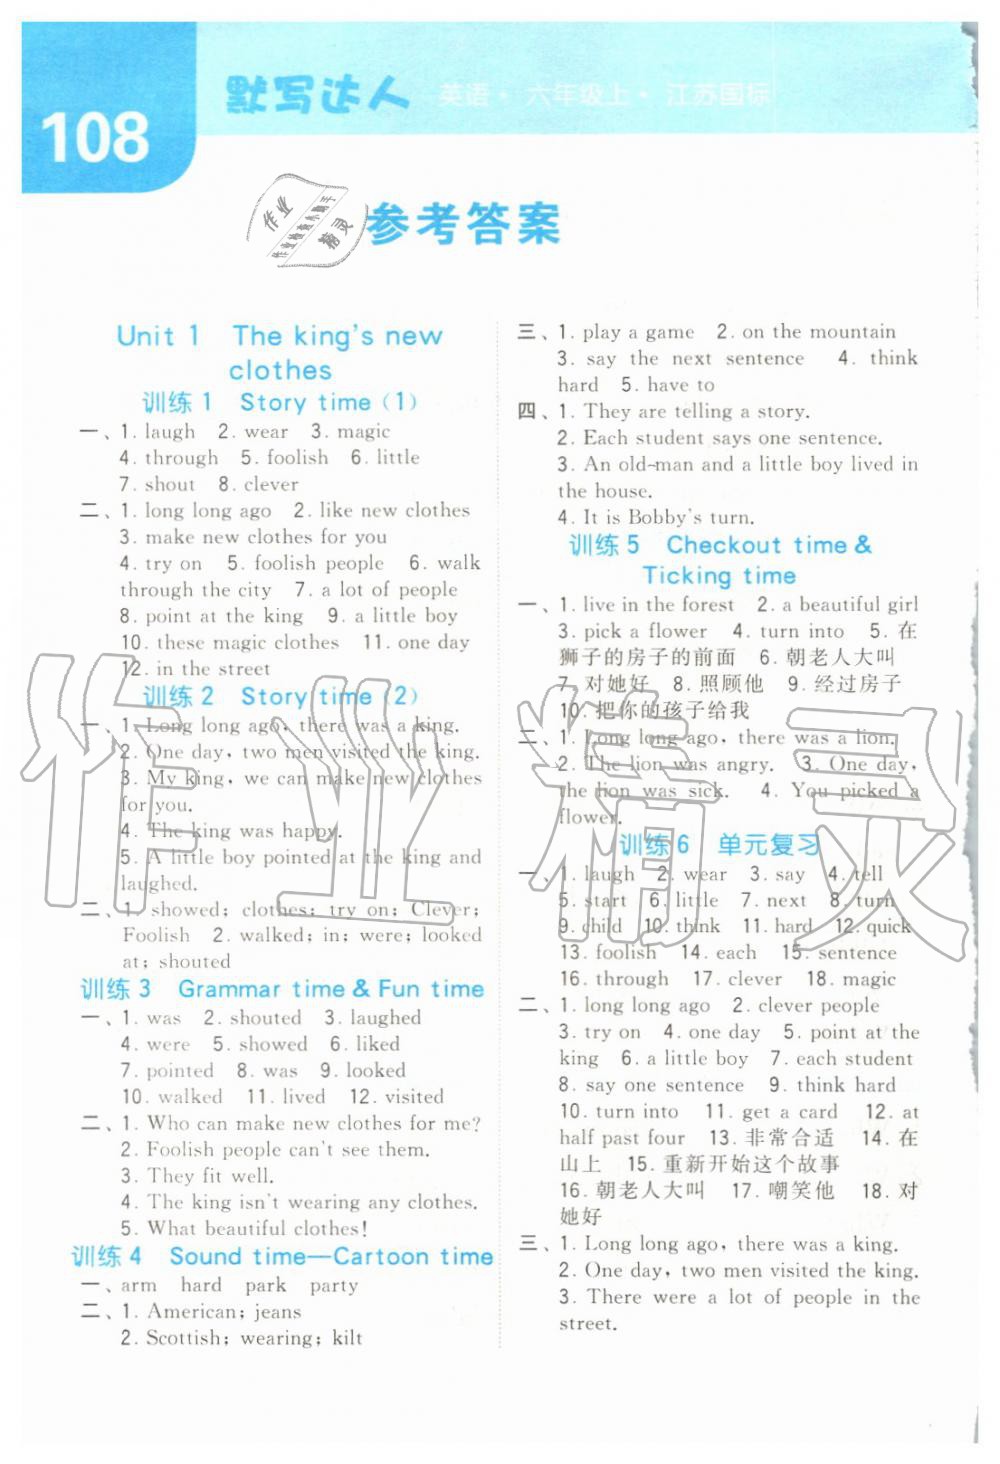 108
默写达人 英语· 六年级上· 江苏国标
作业
作业检查小助手
精灵
参考答案
Unit 1 The king's new
clothes
训练1 Story time(1)
一、1. laugh 2. wear 3. magic
4. through 5. foolish 6. little
7. shout 8. clever
二、1. long long ago 2. like new clothes
3. make new clothes for you
4. try on 5. foolish people 6. walk
through the city 7. a lot of people
8. point at the king 9. a little boy
10. these magic clothes 11. one day
12. in the street
训练2 Story time(2)
一、1. Long long ago, there was a king.
2. One day, two men visited the king.
3. My king, we can make new clothes
for you.
4. The king was happy.
5. A little boy pointed at the king and
laughed.
二、1. showed; clothes; try on; Clever;
Foolish 2. walked; in; were; looked
at; shouted
训练3 Grammar time & Fun time
一、1. was 2. shouted 3. laughed
4. were 5. showed 6. liked
7. pointed 8. was 9. looked
10. walked 11. lived 12. visited
二、1. Who can make new clothes for me?
2. Foolish people can't see them.
3. They fit well.
4. The king isn't wearing any clothes.
5. What beautiful clothes!
训练4 Sound time—Cartoon time
一、arm hard park party
二、1. American; jeans
2. Scottish; wearing; kilt
三、1. play a game 2. on the mountain
3. say the next sentence 4. think
hard 5. have to
四、1. They are telling a story.
2. Each student says one sentence.
3. An old-man and a little boy lived in
the house.
4. It is Bobby's turn.
训练5 Checkout time &
Ticking time
一、1. live in the forest 2. a beautiful girl
3. pick a flower 4. turn into 5. 在
狮子的房子的前面 6. 朝老人大叫
7. 对她好 8. 照顾他 9. 经过房子
10. 把你的孩子给我
二、1. Long long ago, there was a lion.
2. The lion was angry. 3. One day,
the lion was sick. 4. You picked a
flower.
训练6 单元复习
一、1. laugh 2. wear 3. say 4. tell
5. start 6. little 7. next 8. turn
9. child 10. think 11. hard 12. quick
13. foolish 14. each 15. sentence
16. through 17. clever 18. magic
二、1. long long ago 2. clever people
3. try on 4. one day 5. point at the
king 6. a little boy 7. each student
8. say one sentence 9. think hard
10. turn into 11. get a card 12. at
half past four 13. 非常合适 14. 在
山上 15. 重新开始这个故事
16. 朝老人大叫 17. 嘲笑他 18. 对
她好
三、1. Long long ago, there was a king.
2. One day, two men visited the king.
3. There were a lot of people in the
street.
作业精灵